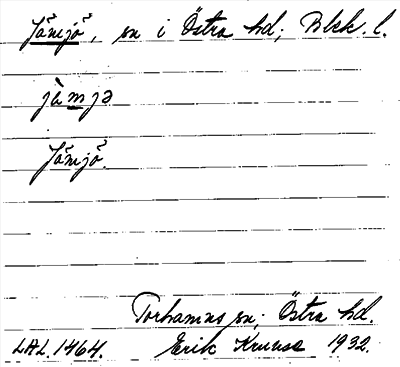 Jämjö, sn i Östra hd; Blek. l.
jàmjə
Jämjö.
Torhamns sn; Östra hd.
LAL. 1464. Erik Kruuse 1932.